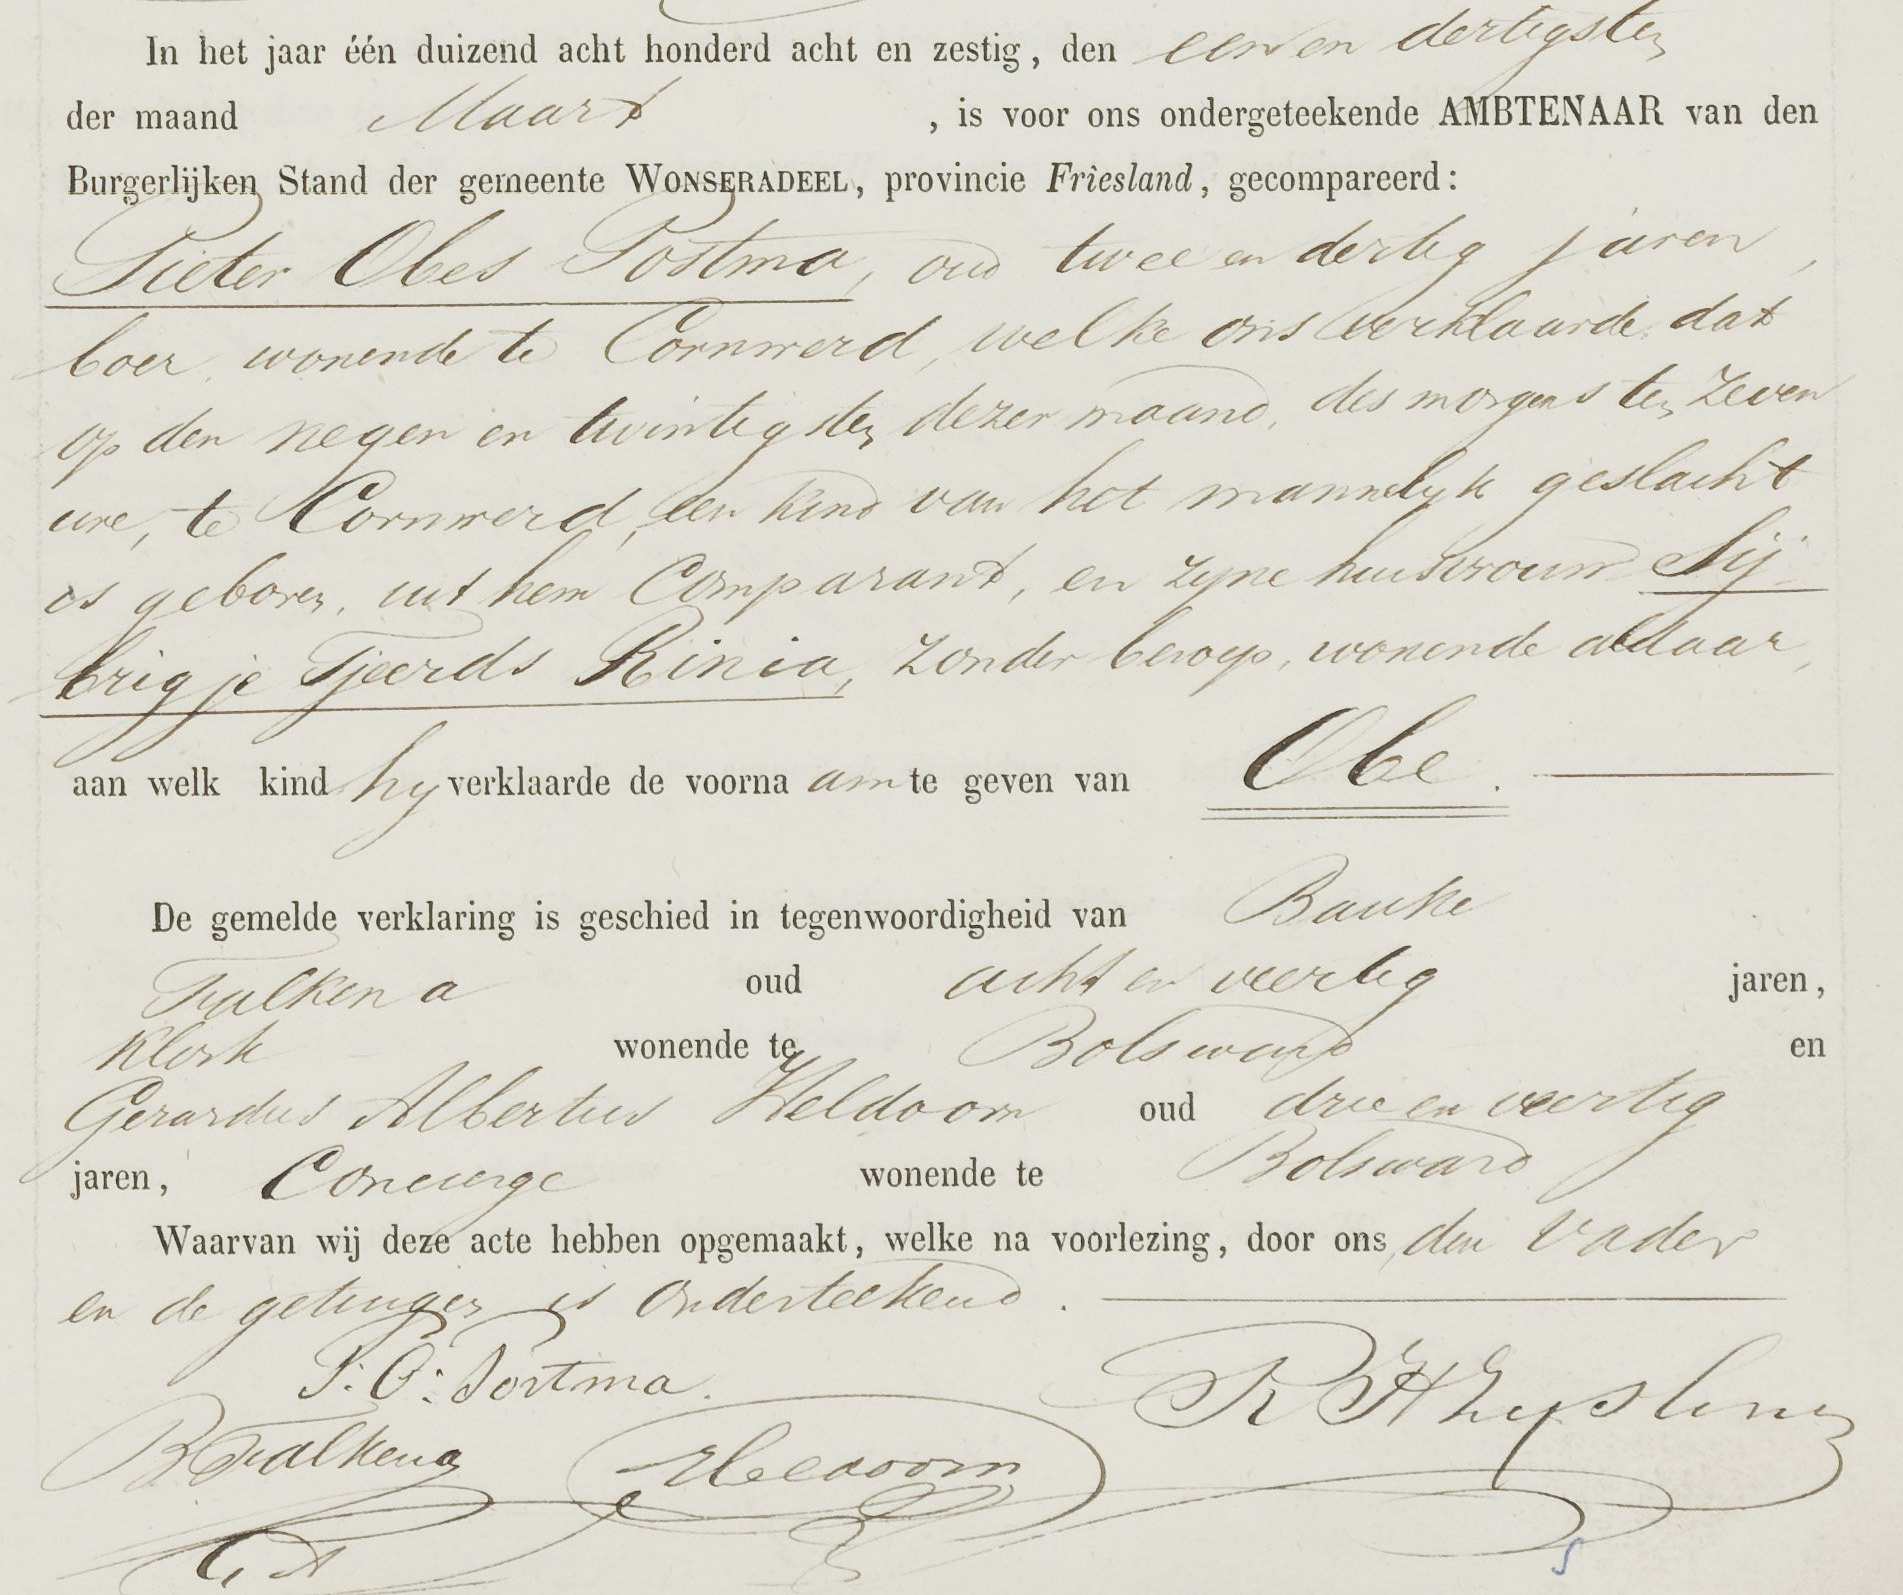 In het jaar één duizend acht honderd acht en zestig, den een en dertigsten
der maand Maart , is voor ons ondergeteekende AMBTENAAR van den
Burgerlijken Stand der gemeente WONSERADEEL, provincie Friesland, gecompareerd:
Pieter Obes Postma, oud twee en dertig jaren,
boer, wonende te Cornwerd, welke ons verklaarde, dat
op den negen en twintigsten dezer maand, des morgens ten zeven
ure, te Cornwerd, een kind van het mannelyk geslacht
is geboren, uit hem Comparant, en zyne huisvrouw Sij-
brigje Tjeerds Rinia, zonder beroep, wonende aldaar,
aan welk kind hy verklaarde de voorna am te geven van Obe.
De gemelde verklaring is geschied in tegenwoordigheid van Bauke
Falkena oud acht en veertig jaren,
Klerk wonende te Bolsward en
Gerardus Albertus Heldoorn oud drie en veertig
jaren, Concierge wonende te Bolsward
Waarvan wij deze acte hebben opgemaakt, welke na voorlezing, door ons, den Vader
en de getuigen is onderteekend.
P: O: Postma.
B Falkena Heldoorn